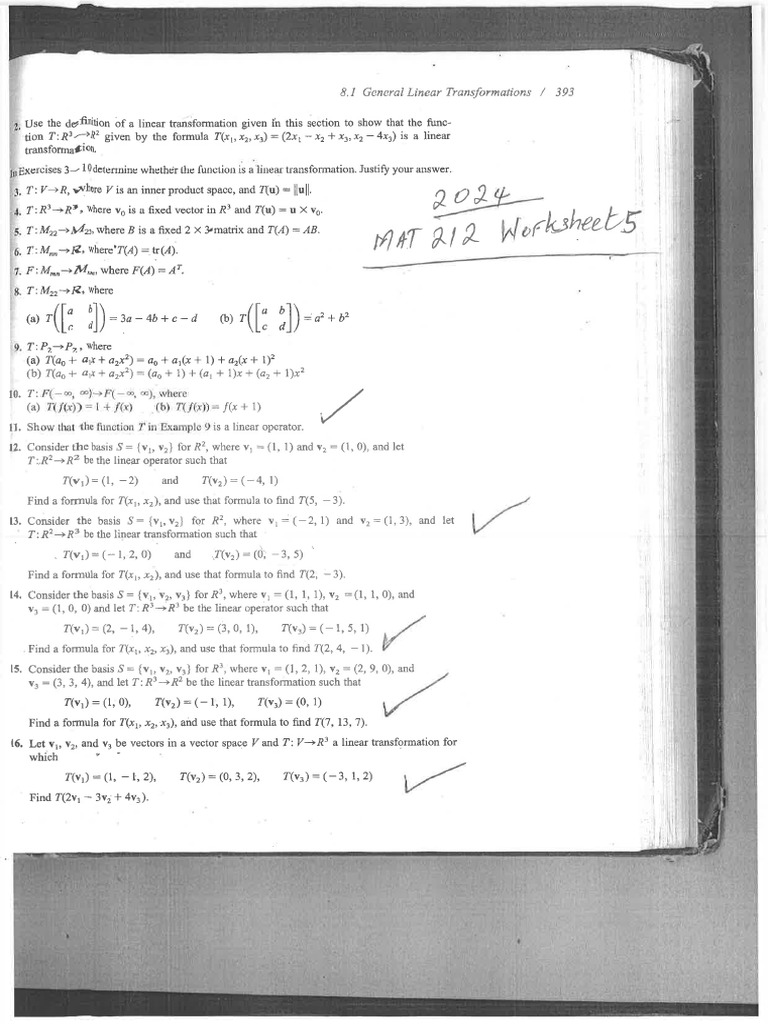 8.1 General Linear Transformations / 393
2. Use the definition of a linear transformation given in this section to show that the func-
tion T: R³→R² given by the formula T(x₁, x₂, x₃) = (2x₁ − x₂ + x₃, x₂ − 4x₃) is a linear
transformation.
In Exercises 3–10 determine whether the function is a linear transformation. Justify your answer.
3. T: V→R, where V is an inner product space, and T(u) = ||u||.
4. T: R³→R³, where v₀ is a fixed vector in R³ and T(u) = u × v₀.
5. T: M₂₂→M₂₃, where B is a fixed 2 × 3 matrix and T(A) = AB.
6. T: Mₙₙ→R, where T(A) = tr(A).
7. F: Mₘₙ→Mₙₘ, where F(A) = Aᵀ.
8. T: M₂₂→R, where
(a) T([a b; c d]) = 3a − 4b + c − d (b) T([a b; c d]) = a² + b²
9. T: P₂→P₂, where
(a) T(a₀ + a₁x + a₂x²) = a₀ + a₁(x + 1) + a₂(x + 1)²
(b) T(a₀ + a₁x + a₂x²) = (a₀ + 1) + (a₁ + 1)x + (a₂ + 1)x²
10. T: F(−∞, ∞)→F(−∞, ∞), where
(a) T(f(x)) = 1 + f(x) (b) T(f(x)) = f(x + 1)
11. Show that the function T in Example 9 is a linear operator.
12. Consider the basis S = {v₁, v₂} for R², where v₁ = (1, 1) and v₂ = (1, 0), and let
T: R²→R² be the linear operator such that
T(v₁) = (1, −2) and T(v₂) = (−4, 1)
Find a formula for T(x₁, x₂), and use that formula to find T(5, −3).
13. Consider the basis S = {v₁, v₂} for R², where v₁ = (−2, 1) and v₂ = (1, 3), and let
T: R²→R³ be the linear transformation such that
T(v₁) = (−1, 2, 0) and T(v₂) = (0, −3, 5)
Find a formula for T(x₁, x₂), and use that formula to find T(2, −3).
14. Consider the basis S = {v₁, v₂, v₃} for R³, where v₁ = (1, 1, 1), v₂ = (1, 1, 0), and
v₃ = (1, 0, 0) and let T: R³→R³ be the linear operator such that
T(v₁) = (2, −1, 4), T(v₂) = (3, 0, 1), T(v₃) = (−1, 5, 1)
Find a formula for T(x₁, x₂, x₃), and use that formula to find T(2, 4, −1).
15. Consider the basis S = {v₁, v₂, v₃} for R³, where v₁ = (1, 2, 1), v₂ = (2, 9, 0), and
v₃ = (3, 3, 4), and let T: R³→R² be the linear transformation such that
T(v₁) = (1, 0), T(v₂) = (−1, 1), T(v₃) = (0, 1)
Find a formula for T(x₁, x₂, x₃), and use that formula to find T(7, 13, 7).
16. Let v₁, v₂, and v₃ be vectors in a vector space V and T: V→R³ a linear transformation for
which
T(v₁) = (1, −1, 2), T(v₂) = (0, 3, 2), T(v₃) = (−3, 1, 2)
Find T(2v₁ − 3v₂ + 4v₃).
2024
MAT 212 Worksheet 5